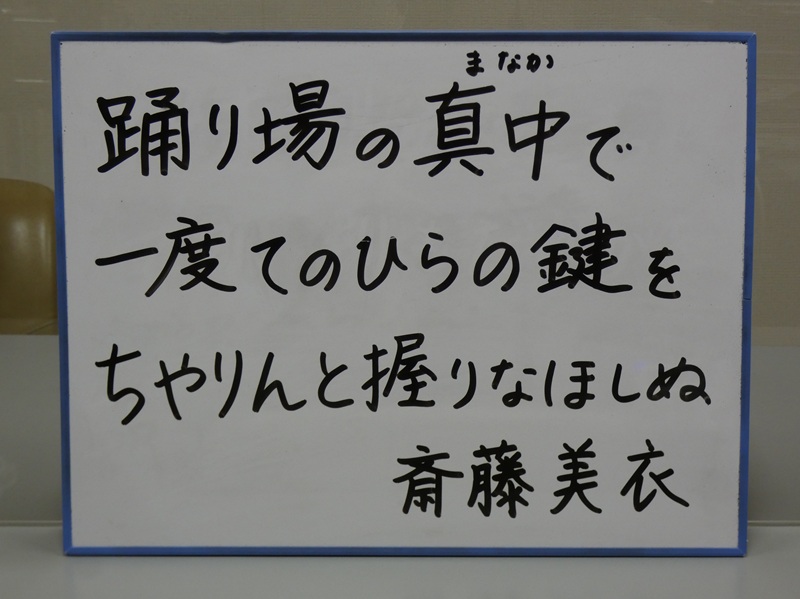 まなか
踊り場の真中で
一度てのひらの鍵を
ちゃりんと握りなほしぬ
斎藤美衣